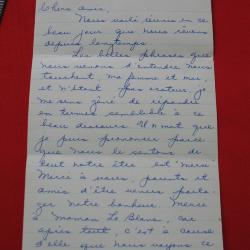 Chers amis,
Nous voilà réunis en ce
beau jour que nous rêvons
depuis longtemps.
Les belles phrases que
nous venons d'entendre nous
touchent, ma femme et moi,
et n'étant pas orateur, j'
me sens gêné de répondre
en termes semblable à ce
beau discours. Un mot que
je puis prononcer parce
que nous le sentons de
tout notre être est "merci"
Merci à vous, parents et
amis d'être venus parta-
ger notre bonheur, merci
à Maman Le Blanc, car
après tout, c'est à cause
d'elle que nous voyons ce